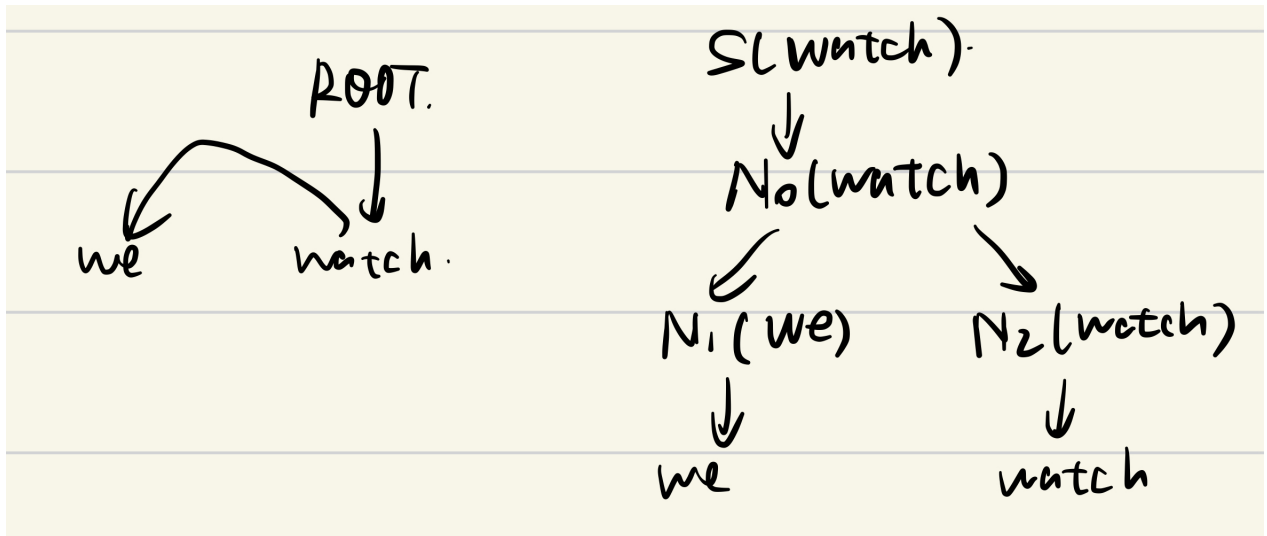 ROOT.
we watch.
S(watch).
N₀(watch)
N₁(we) N₂(watch)
we watch